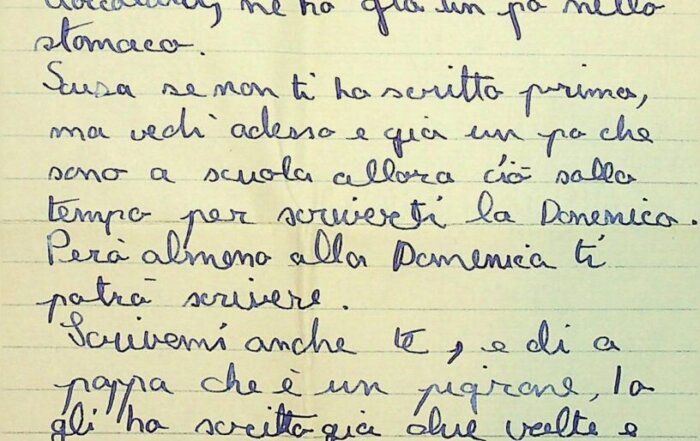 ne ho già un pò nello
stomaco.
Scusa se non ti ho scritto primo,
ma vedi adesso e già un po che
sono a scuola allora ciò sollo
tempo per scriverti la Domenica.
Però almeno alla Domenica ti
potrò scrivere.
Scrivemi anche te, e di a
pappa che è un pigrone, Io
gli ho scritto già due veolte e